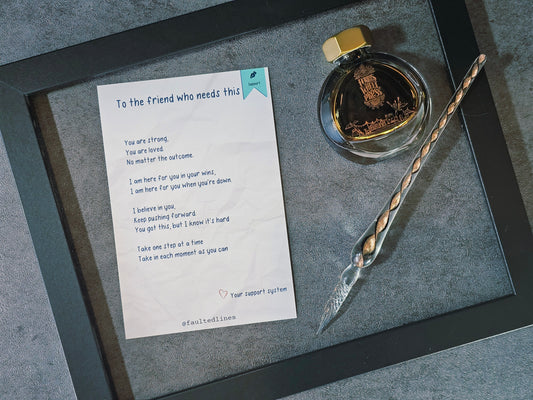 To the friend who needs this
You are strong,
You are loved
No matter the outcome.
I am here for you in your wins,
I am here for you when you're down.
I believe in you,
Keep pushing forward.
You got this, but I know it's hard
Take one step at a time
Take in each moment as you can
Your support system
@faultedlines